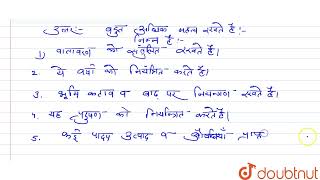 उत्तर- बहुत अधिक महत्व रखते हैं।
निम्न है :-
1) वातावरण को संतुलित रखते हैं।
2. ये वर्षा को नियंत्रित करते हैं।
3. भूमि कटाव व बाढ़ पर नियन्त्रण रखते हैं।
4. यह प्रदूषण को नियन्त्रित करते हैं।
5. कई पादप उत्पाद व औषधियाँ प्राप्त
doubtnut